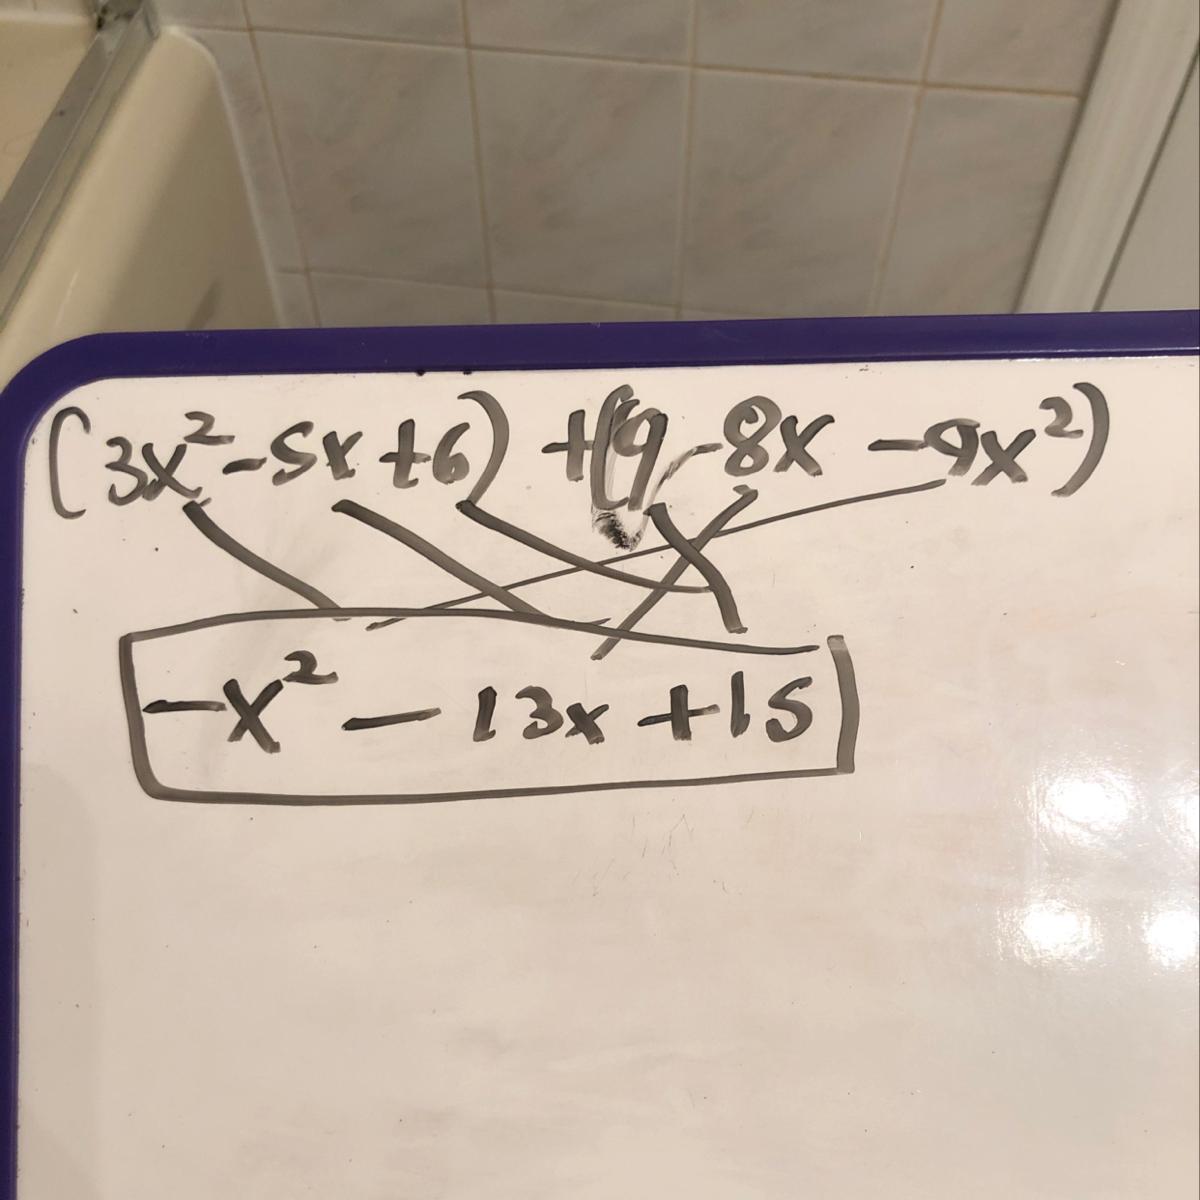 (3x² - 5x + 6) + (9 - 8x - 9x²)
-x² - 13x + 15